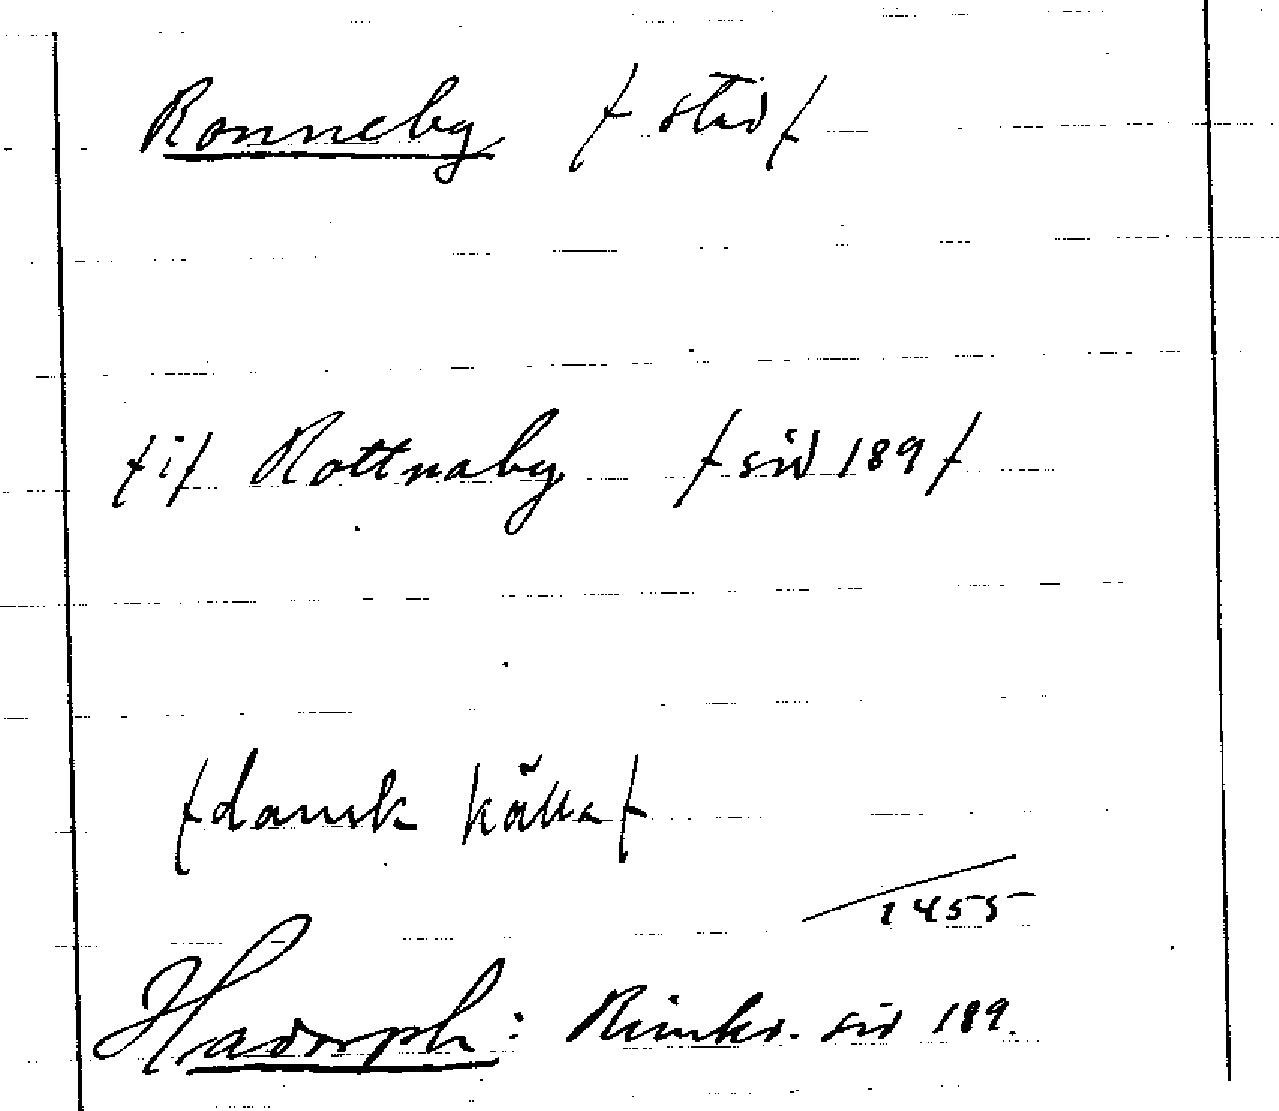 Ronneby (stad)
(i) Rottnaby (sid 189)
(dansk källa)
1455
Hadorph: Rimkr. sid 189.